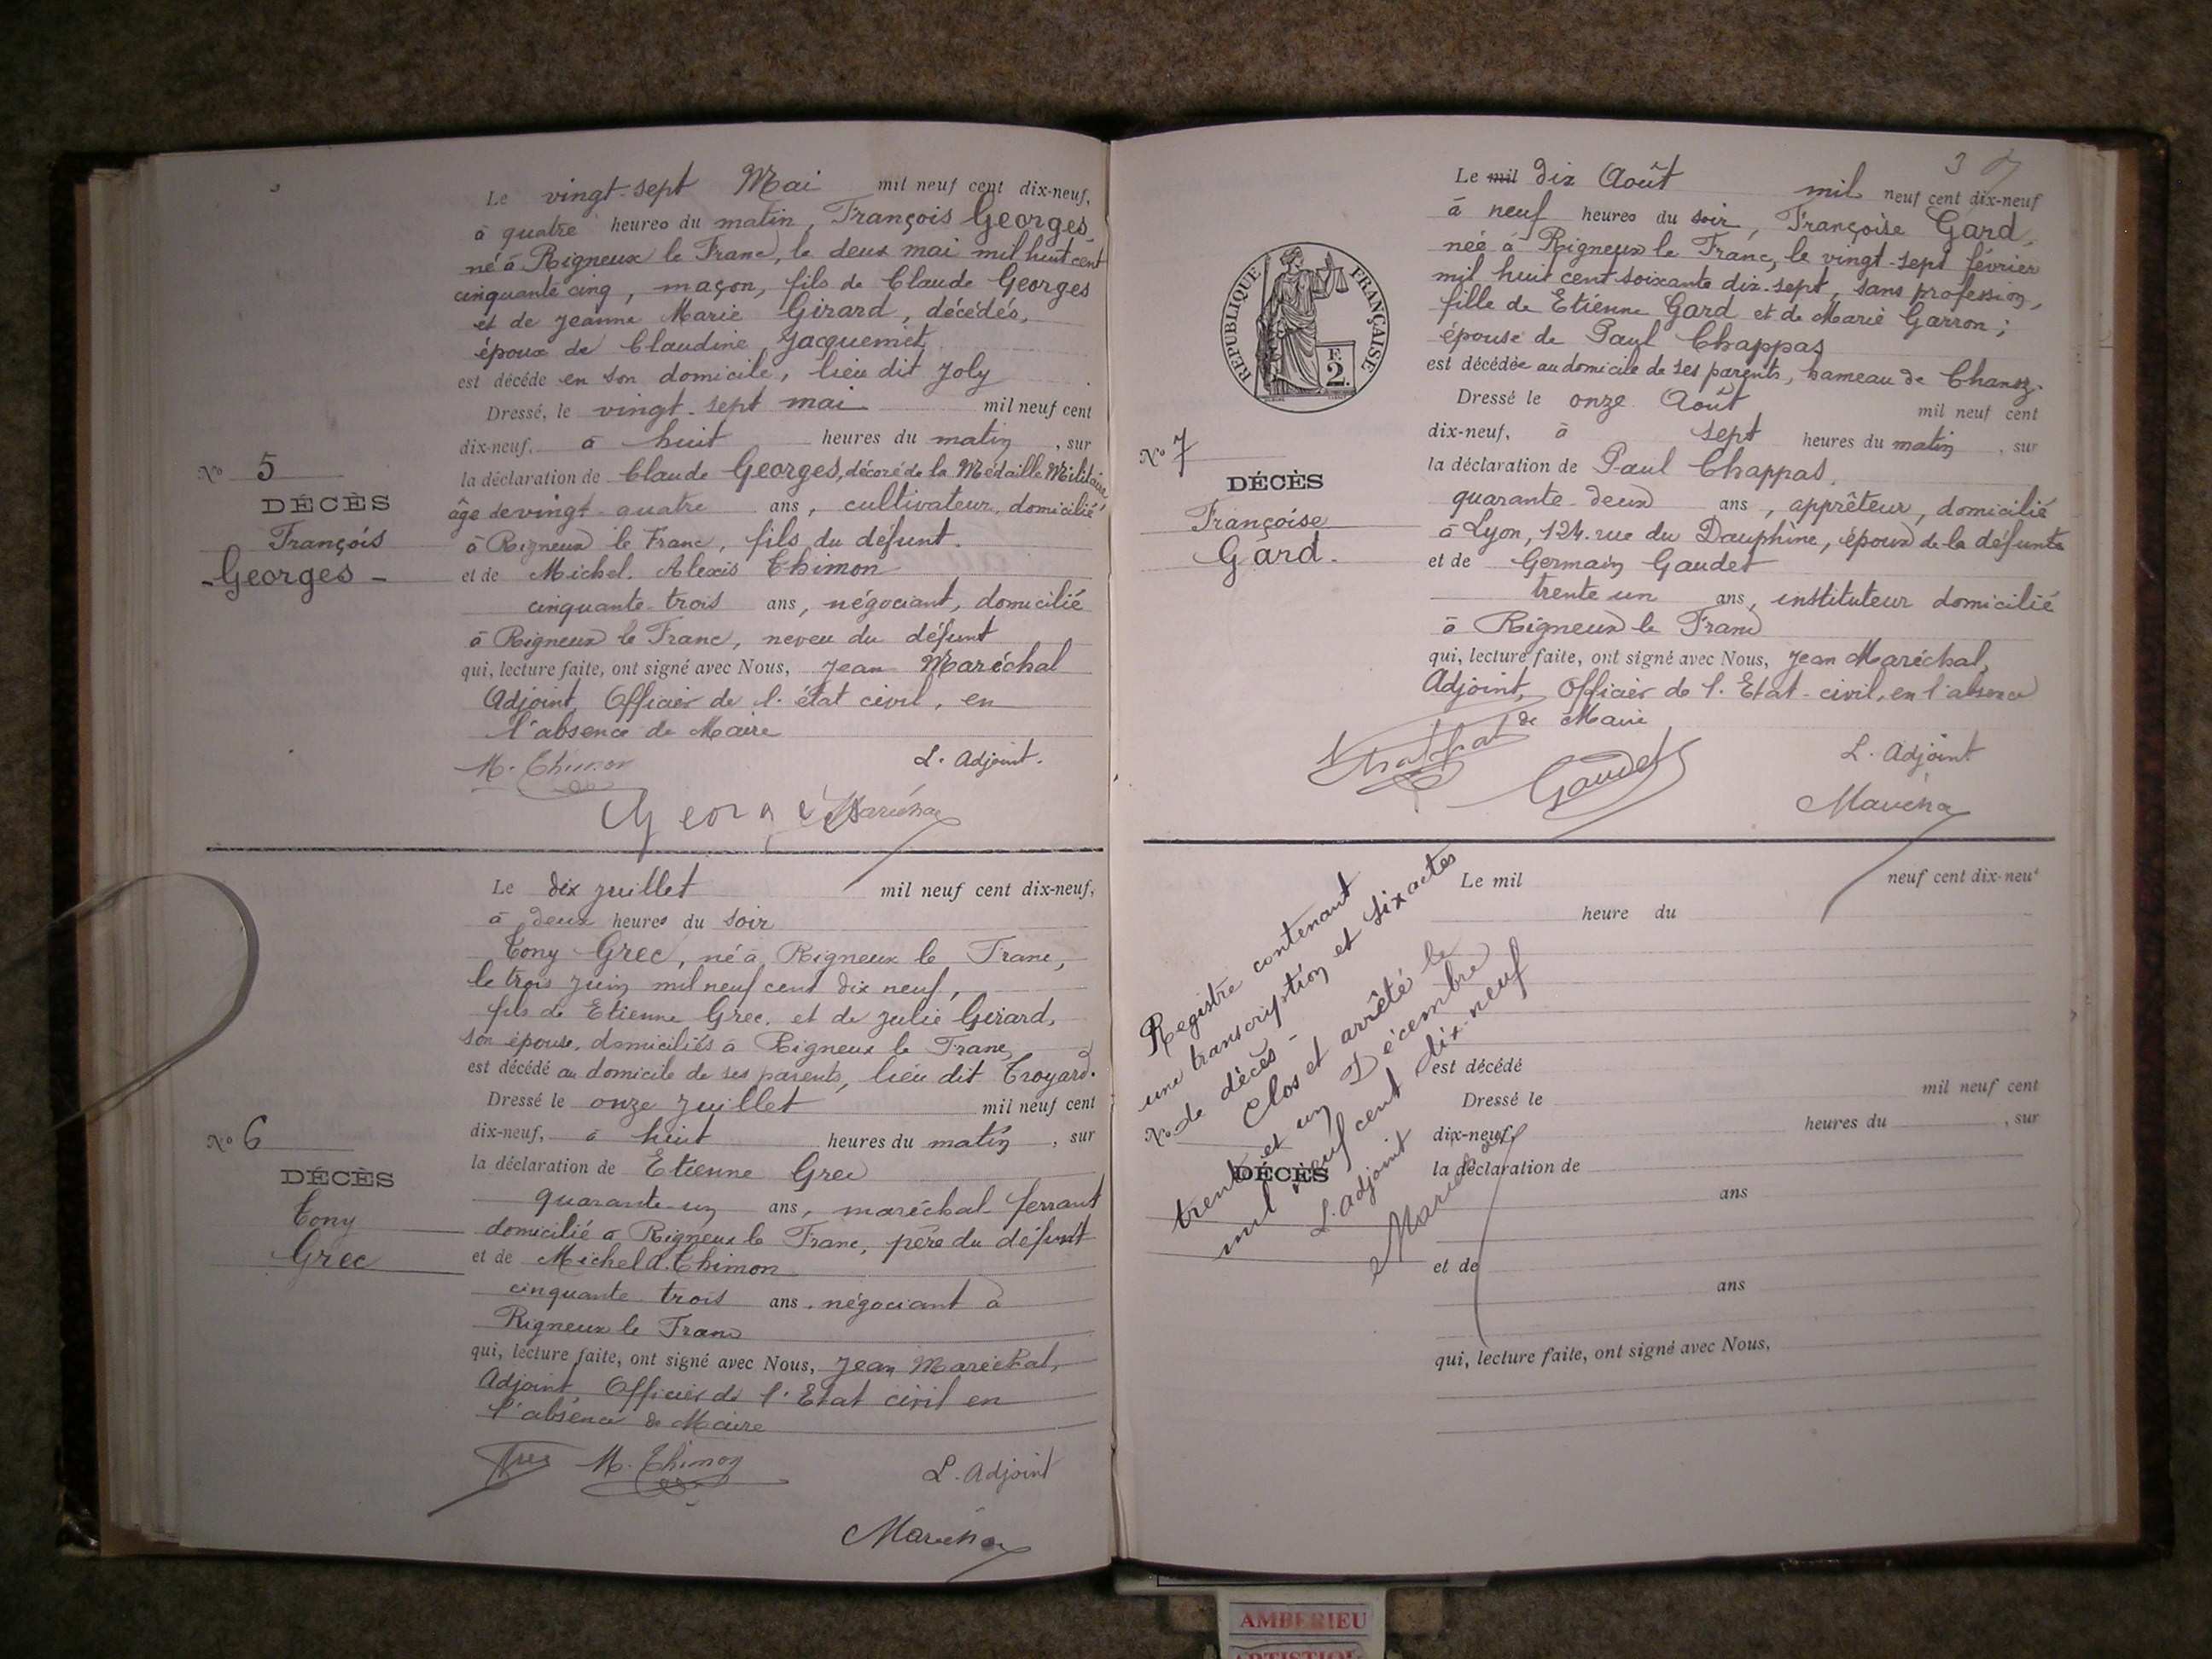 Le vingt-sept Mai mil neuf cent dix-neuf,
à quatre heures du matin, François Georges
né à Rigneux le Franc, le deux mai mil huit cent
cinquante cinq, maçon, fils de Claude Georges
et de Jeanne Marie Girard, décédés,
époux de Claudine Jacquemet
est décédé en son domicile, lieu dit Joly
Dressé, le vingt-sept mai mil neuf cent
dix-neuf, à huit heures du matin, sur
la déclaration de Claude Georges, décoré de la Médaille Militaire,
âgé de vingt-quatre ans, cultivateur, domicilié
à Rigneux le Franc, fils du défunt.
et de Michel Alexis Thimon
cinquante-trois ans, négociant, domicilié
à Rigneux le Franc, neveu du défunt
qui, lecture faite, ont signé avec Nous, Jean Maréchal
Adjoint, Officier de l'état civil, en
l'absence de Maire
M. Thimon L. Adjoint.
George Maréchal
No 5
DÉCÈS
François
-Georges-
Le dix juillet mil neuf cent dix-neuf,
à deux heures du soir
Tony Grec, né à Rigneux le Franc,
le trois juin mil neuf cent dix neuf,
fils de Etienne Grec, et de Julie Girard,
son épouse, domiciliés à Rigneux le Franc,
est décédé au domicile de ses parents, lieu dit Troyard.
Dressé le onze juillet mil neuf cent
dix-neuf, à huit heures du matin, sur
la déclaration de Etienne Grec
quarante-un ans, maréchal ferrant
domicilié à Rigneux le Franc, père du défunt
et de Michel A. Thimon
cinquante trois ans, négociant à
Rigneux le Franc
qui, lecture faite, ont signé avec Nous, Jean Maréchal,
Adjoint, Officier de l'Etat civil en
l'absence de Maire
Grec M. Thimon L. Adjoint
Maréchal
No 6
DÉCÈS
Tony
Grec
3
Le mil dix Août mil neuf cent dix-neuf
à neuf heures du soir, Françoise Gard,
née à Rigneux le Franc, le vingt-sept février
mil huit cent soixante dix-sept, sans profession,
fille de Etienne Gard et de Marie Garron;
épouse de Paul Chappas
est décédée au domicile de ses parents, hameau de Chanoz.
Dressé le onze Août mil neuf cent
dix-neuf, à sept heures du matin, sur
la déclaration de Paul Chappas,
quarante-deux ans, apprêteur, domicilié
à Lyon, 124, rue du Dauphiné, époux de la défunte
et de Germain Gaudet
trente un ans, instituteur domicilié
à Rigneux le Franc
qui, lecture faite, ont signé avec Nous, Jean Maréchal,
Adjoint, Officier de l'Etat-civil, en l'absence
de Maire
Gaudet
L. Adjoint
Maréchal
RÉPUBLIQUE FRANÇAISE
F.
2.
No 7
DÉCÈS
Françoise
Gard.
Registre contenant
une transcription et six actes
de décès -
Clos et arrêté le
trente et un Décembre
mil neuf cent dix-neuf
L. Adjoint
Maréchal
No
DÉCÈS
Le mil neuf cent dix-neuf
heure du
est décédé
Dressé le mil neuf cent
dix-neuf, heures du , sur
la déclaration de
ans
et de
ans
qui, lecture faite, ont signé avec Nous,
AMBERIEU